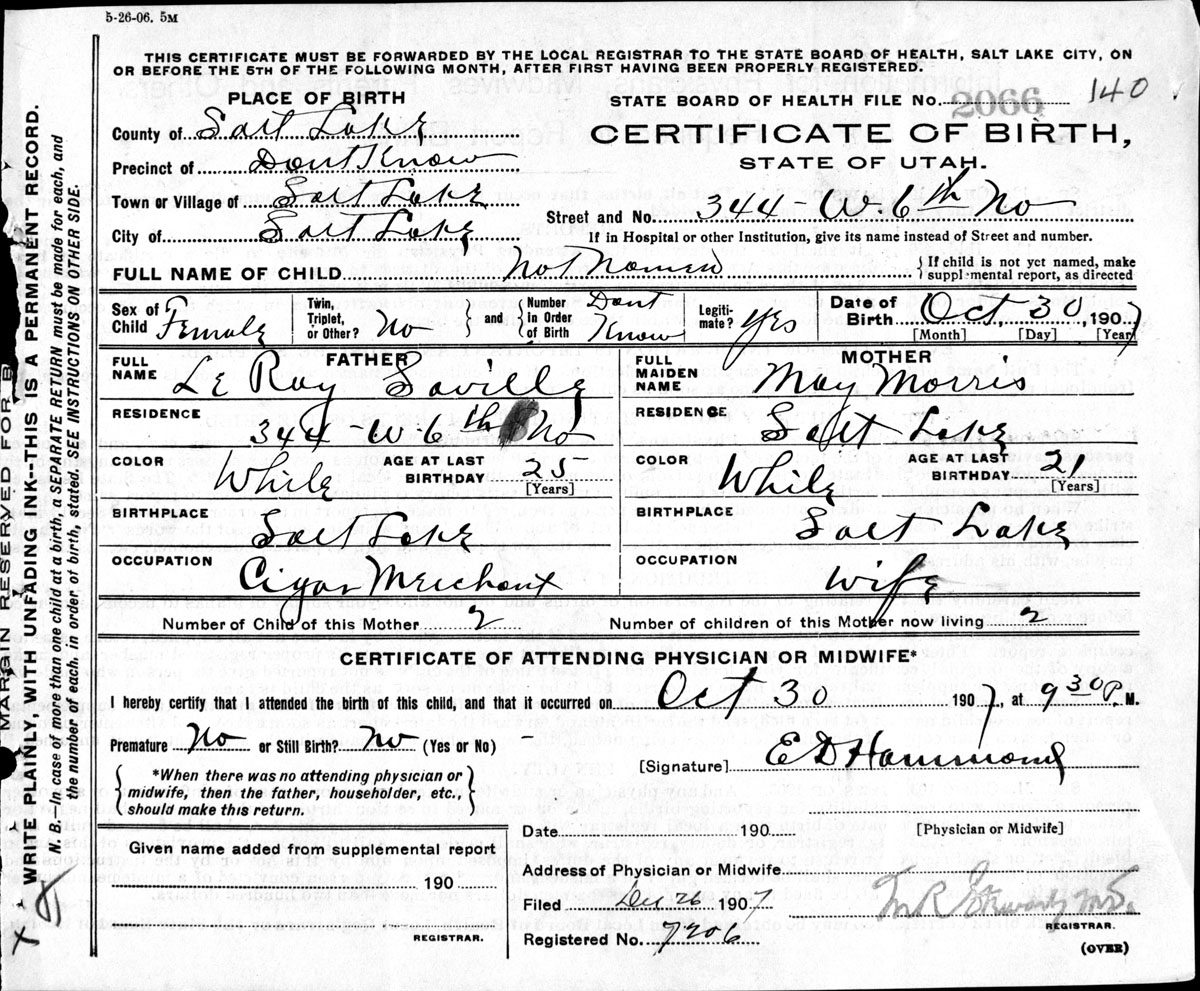 5-26-06. 5M
THIS CERTIFICATE MUST BE FORWARDED BY THE LOCAL REGISTRAR TO THE STATE BOARD OF HEALTH, SALT LAKE CITY, ON
OR BEFORE THE 5TH OF THE FOLLOWING MONTH, AFTER FIRST HAVING BEEN PROPERLY REGISTERED.
PLACE OF BIRTH
STATE BOARD OF HEALTH FILE No. 2066 140
County of Salt Lake
CERTIFICATE OF BIRTH,
Precinct of Dont Know
STATE OF UTAH.
Town or Village of Salt Lake
Street and No. 344-W. 6th No
City of Salt Lake
If in Hospital or other Institution, give its name instead of Street and number.
FULL NAME OF CHILD Not Named
{ If child is not yet named, make
supplmental report, as directed
Sex of Child Female
Twin, Triplet, or Other? No
} and {
Number in Order of Birth Dont Know
Legiti-mate? Yes
Date of Birth Oct, 30, 1907
[Month] [Day] [Year]
FATHER
FULL NAME Le Roy Saville
MOTHER
FULL MAIDEN NAME May Morris
RESIDENCE 344-W 6th No
RESIDENCE Salt Lake
COLOR White AGE AT LAST BIRTHDAY 25 [Years]
COLOR White AGE AT LAST BIRTHDAY 21 [Years]
BIRTHPLACE Salt Lake
BIRTHPLACE Salt Lake
OCCUPATION Cigar Merchant
OCCUPATION Wife
Number of Child of this Mother 2
Number of children of this Mother now living 2
CERTIFICATE OF ATTENDING PHYSICIAN OR MIDWIFE*
I hereby certify that I attended the birth of this child, and that it occurred on Oct 30 1907, at 9 30 P. M.
Premature No or Still Birth? No (Yes or No) -
[Signature] E D Hammond
{ *When there was no attending physician or
midwife, then the father, householder, etc.,
should make this return. }
Date 190
[Physician or Midwife]
Given name added from supplemental report
190
REGISTRAR.
Address of Physician or Midwife
Filed Dec 26 1907
M.D.
REGISTRAR.
Registered No. 7206
(OVER)
MARGIN RESERVED FOR B
WRITE PLAINLY, WITH UNFADING INK--THIS IS A PERMANENT RECORD.
N. B.--In case of more than one child at a birth, a SEPARATE RETURN must be made for each, and
the number of each, in order of birth, stated. SEE INSTRUCTIONS ON OTHER SIDE.
X